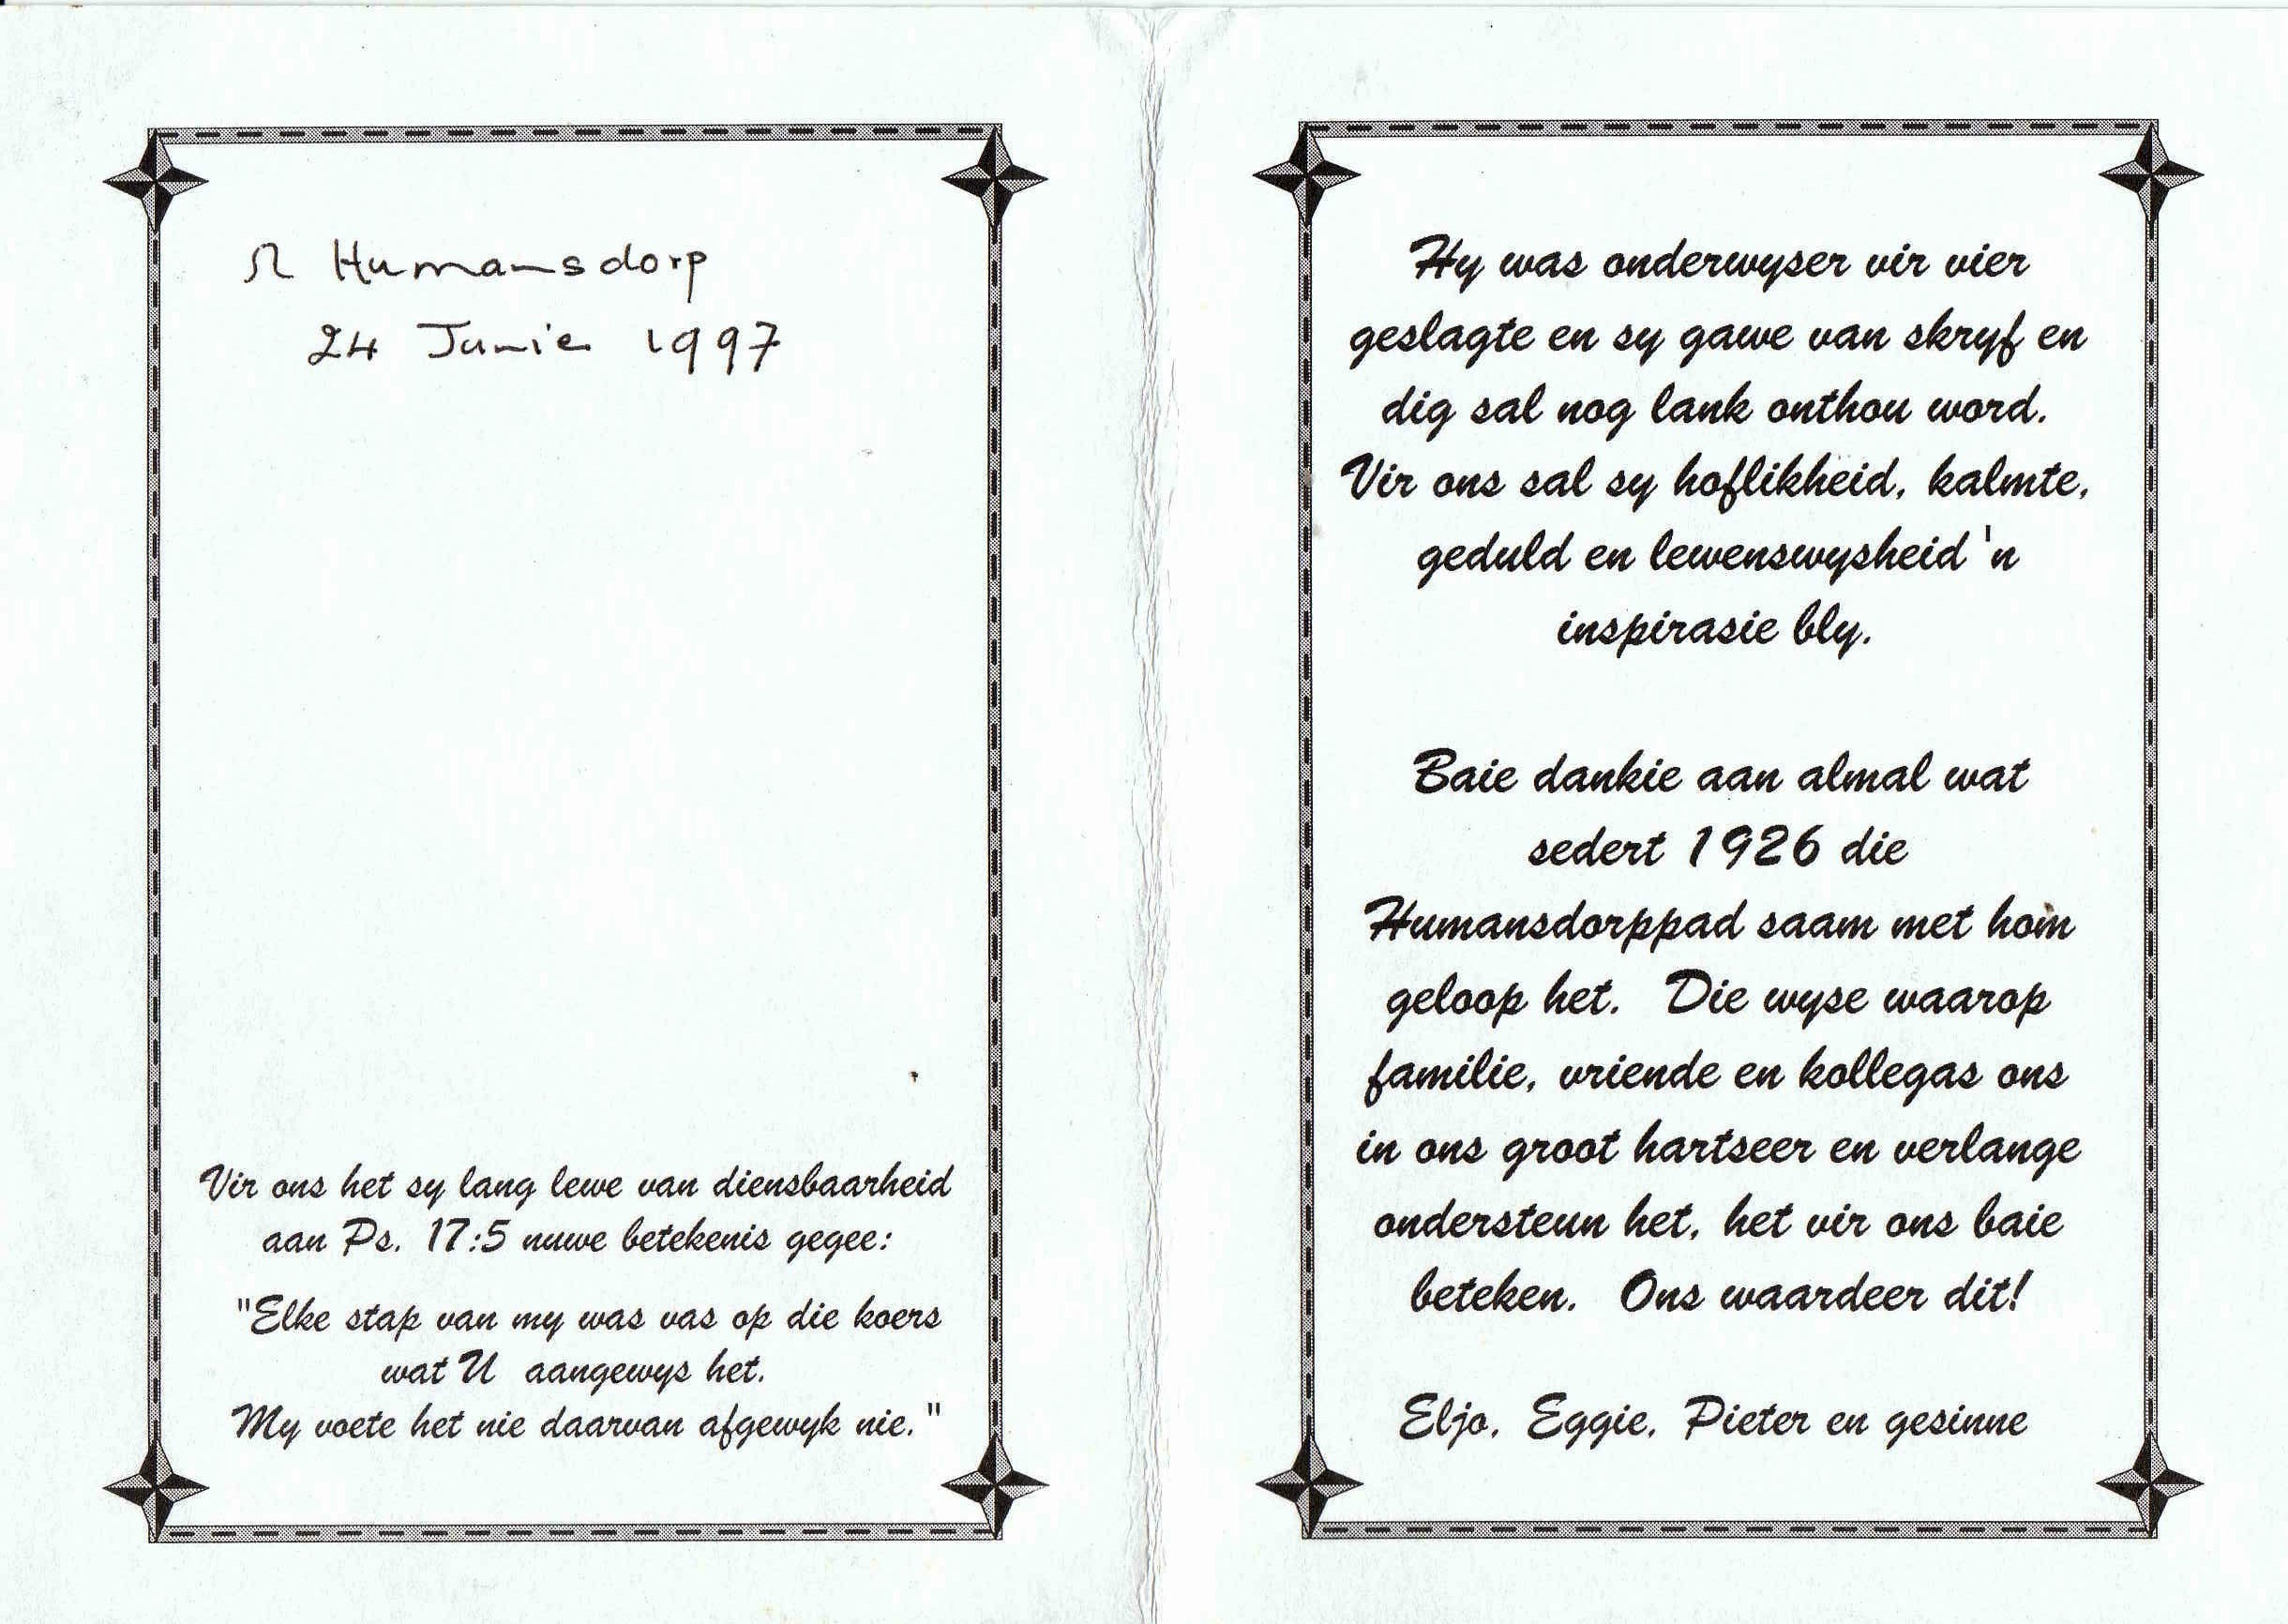 Ω Humansdorp
24 Junie 1997
Vir ons het sy lang lewe van diensbaarheid
aan Ps. 17:5 nuwe betekenis gegee:
"Elke stap van my was vas op die koers
wat U aangewys het.
My voete het nie daarvan afgewyk nie."
Hy was onderwyser vir vier
geslagte en sy gawe van skryf en
dig sal nog lank onthou word.
Vir ons sal sy hoflikheid, kalmte,
geduld en lewenswysheid 'n
inspirasie bly.
Baie dankie aan almal wat
sedert 1926 die
Humansdorppad saam met hom
geloop het. Die wyse waarop
familie, vriende en kollegas ons
in ons groot hartseer en verlange
ondersteun het, het vir ons baie
beteken. Ons waardeer dit!
Eljo, Eggie, Pieter en gesinne